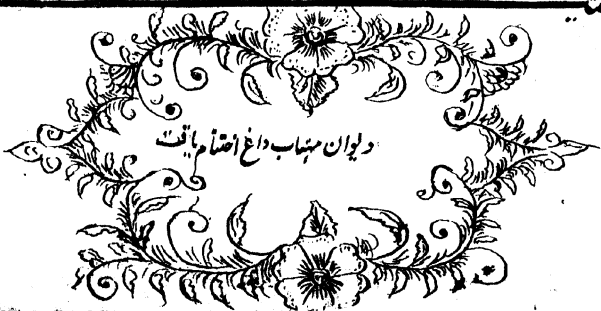 دیوان مہتاب داغ اختتام یافت